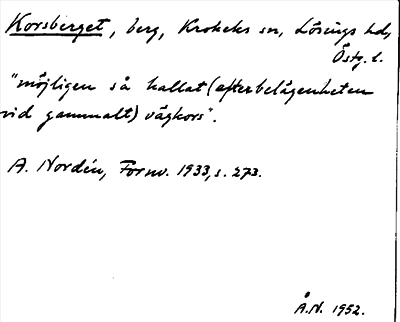 Korsberget, berg, Krokeks sn, Lösings hd,
Östg. l.
"möjligen så kallat (efter belägenheten
vid gammalt) vägkors".
A. Nordén, Fornv. 1933, s. 273.
Å.N. 1952.